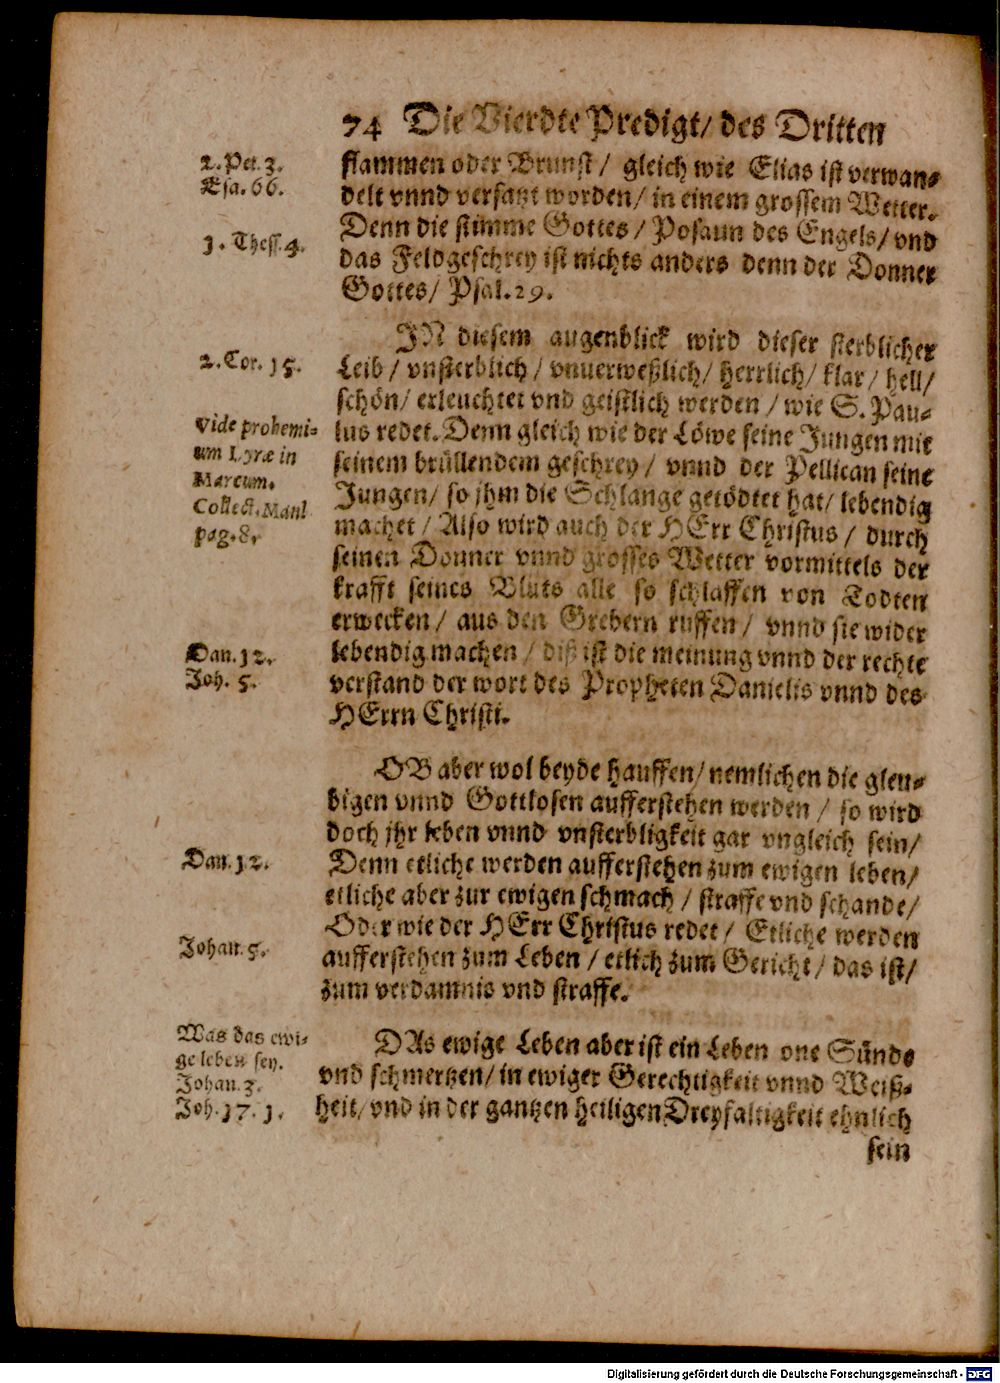 74 Die Vierdte Predigt/ des Dritten
2. Pet. 3.
Esa. 66.
1. Thess. 4.
flammen oder Brunst/ gleich wie Elias ist verwan-
delt vnnd versatzt worden/ in einem grossem Wetter.
Denn die stimme Gottes/ Posaun des Engels/ vnd
das Feldgeschrey ist nichts anders denn der Donner
Gottes/ Psal. 29.
2. Cor. 15.
vide prohemi-
um Lyræ in
Marcum.
Collect. Manl
pag. 8.
Dan. 12.
Joh. 5.
IN diesem augenblick wird dieser sterblicher
Leib/ vnsterblich/ vnuerweßlich/ herrlich/ klar/ hell/
schön/ erleuchtet vnd geistlich werden/ wie S. Pau-
lus redet. Denn gleich wie der Löwe seine Jungen mit
seinem brüllendem geschrey/ vnnd der Pellican seine
Jungen/ so jhm die Schlange getödtet hat/ lebendig
machet/ Also wird auch der HErr Christus/ durch
seinen Donner vnnd grosses Wetter vormittels der
krafft seines Bluts alle so schlaffen von Todten
erwecken/ aus den Grebern ruffen/ vnnd sie wider
lebendig machen/ diß ist die meinung vnnd der rechte
verstand der wort des Propheten Danielis vnnd des
HErrn Christi.
Dan. 12.
Johan. 5.
OB aber wol beyde hauffen/ nemlichen die gleu-
bigen vnnd Gottlosen aufferstehen werden/ so wird
doch jhr leben vnnd vnsterbligkeit gar vngleich sein/
Denn etliche werden aufferstehen zum ewigen leben/
etliche aber zur ewigen schmach/ straffe vnd schande/
Oder wie der HErr Christus redet/ Etliche werden
aufferstehen zum Leben/ etlich zum Gericht/ das ist/
zum verdamnis vnd straffe.
Was das ewi-
ge leben sey.
Johan. 3.
Joh. 17. 1.
DAs ewige Leben aber ist ein Leben one Sünde
vnd schmertzen/ in ewiger Gerechtigkeit vnnd Weiß-
heit/ vnd in der gantzen heiligen Dreyfaltigkeit ehnlich
sein
Digitalisierung gefördert durch die Deutsche Forschungsgemeinschaft - DFG